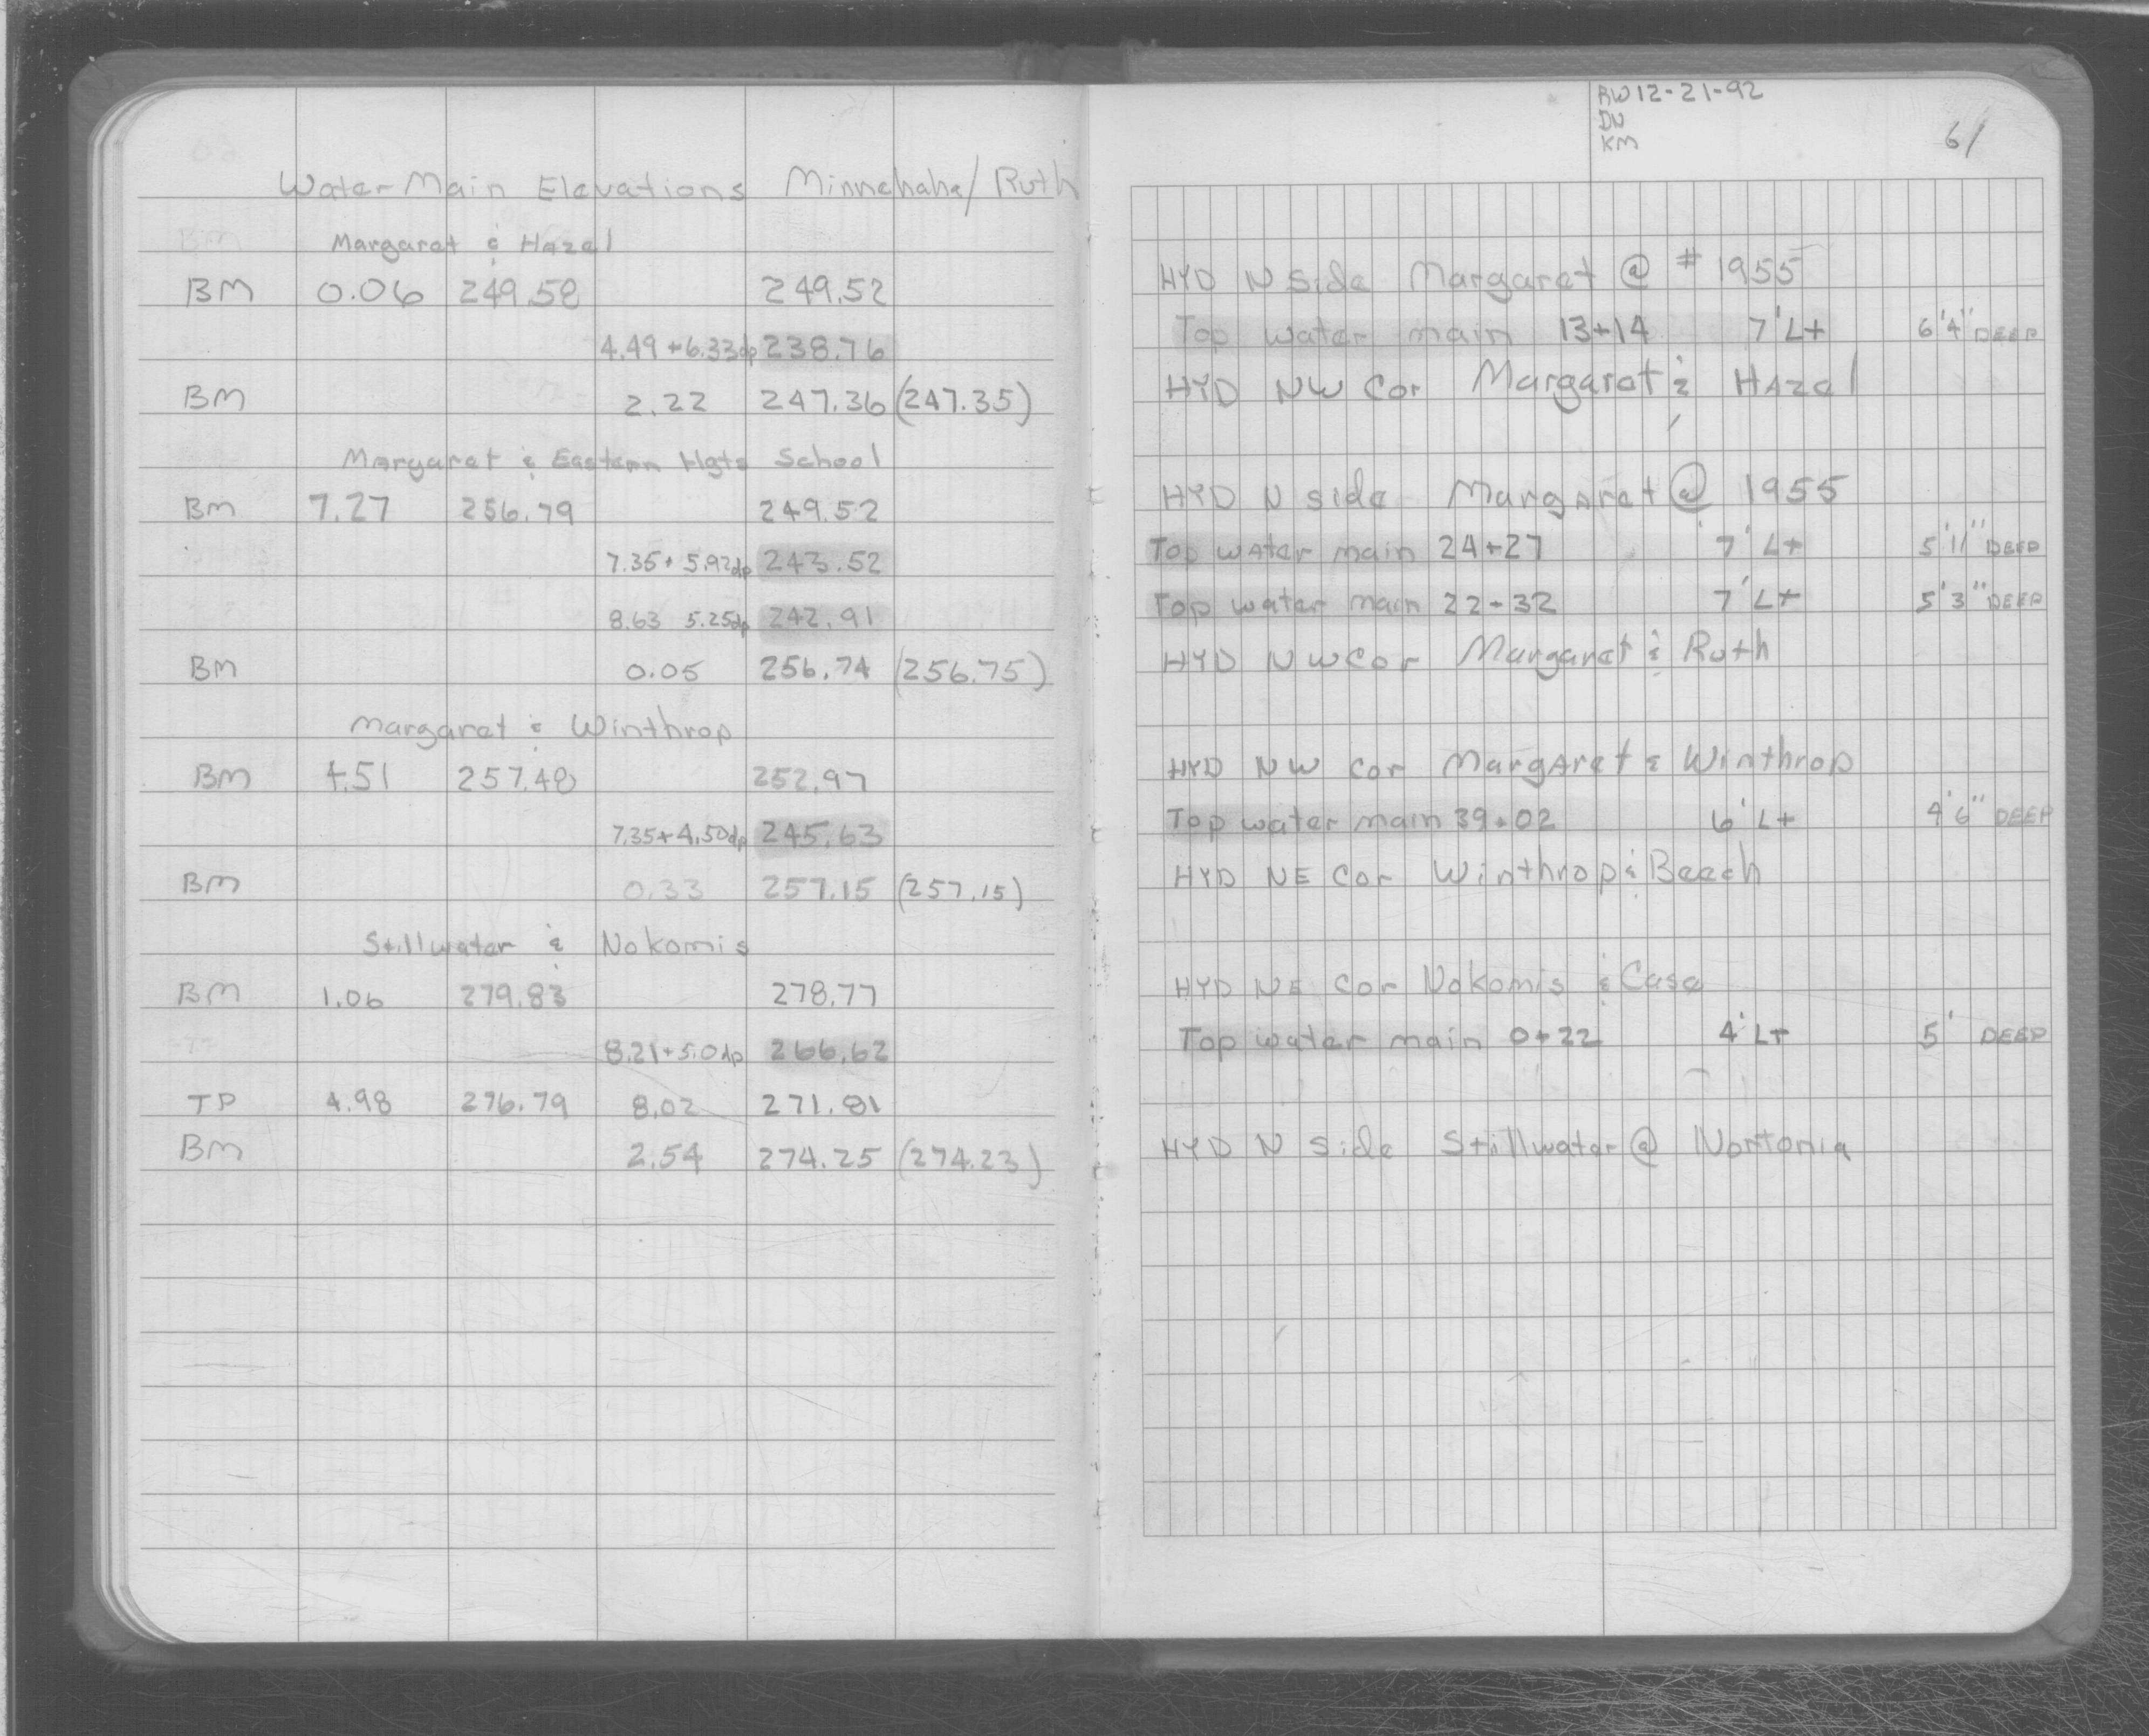 Water Main Elevations Minnehaha/Ruth
BM Margaret & Hazel
BM 0.06 249.58 249.52
4.49+6.33dp 238.76
BM 2.22 247.36 (247.35)
Margaret & Eastern Hgts School
BM 7.27 256.79 249.52
7.35+ 5.92dp 243.52
8.63 5.25dp 242.91
BM 0.05 256.74 (256.75)
Margaret & Winthrop
BM 4.51 257.48 252.97
7.35+4.50dp 245.63
BM 0.33 257.15 (257.15)
Stillwater & Nokomis
BM 1.06 279.83 278.77
8.21+5.0dp 266.62
TP 4.98 276.79 8.02 271.81
BM 2.54 274.25 (274.23)
RW 12-21-92
DN
KM
61
HYD N Side Margaret @ #1955
Top water main 13+14 7' Lt 6'4" DEEP
HYD NW Cor Margaret & Hazel
HYD N side Margaret @ 1955
Top water main 24+27 7' Lt 5'11" DEEP
Top water main 22+32 7' Lt 5'3" DEEP
HYD NW Cor Margaret & Ruth
HYD NW Cor Margaret & Winthrop
Top water main 39+02 6' Lt 4'6" DEEP
HYD NE Cor Winthrop & Beech
HYD NE Cor Nokomis & Case
Top water main 0+22 4' LT 5' DEEP
HYD N Side Stillwater @ Nortonia